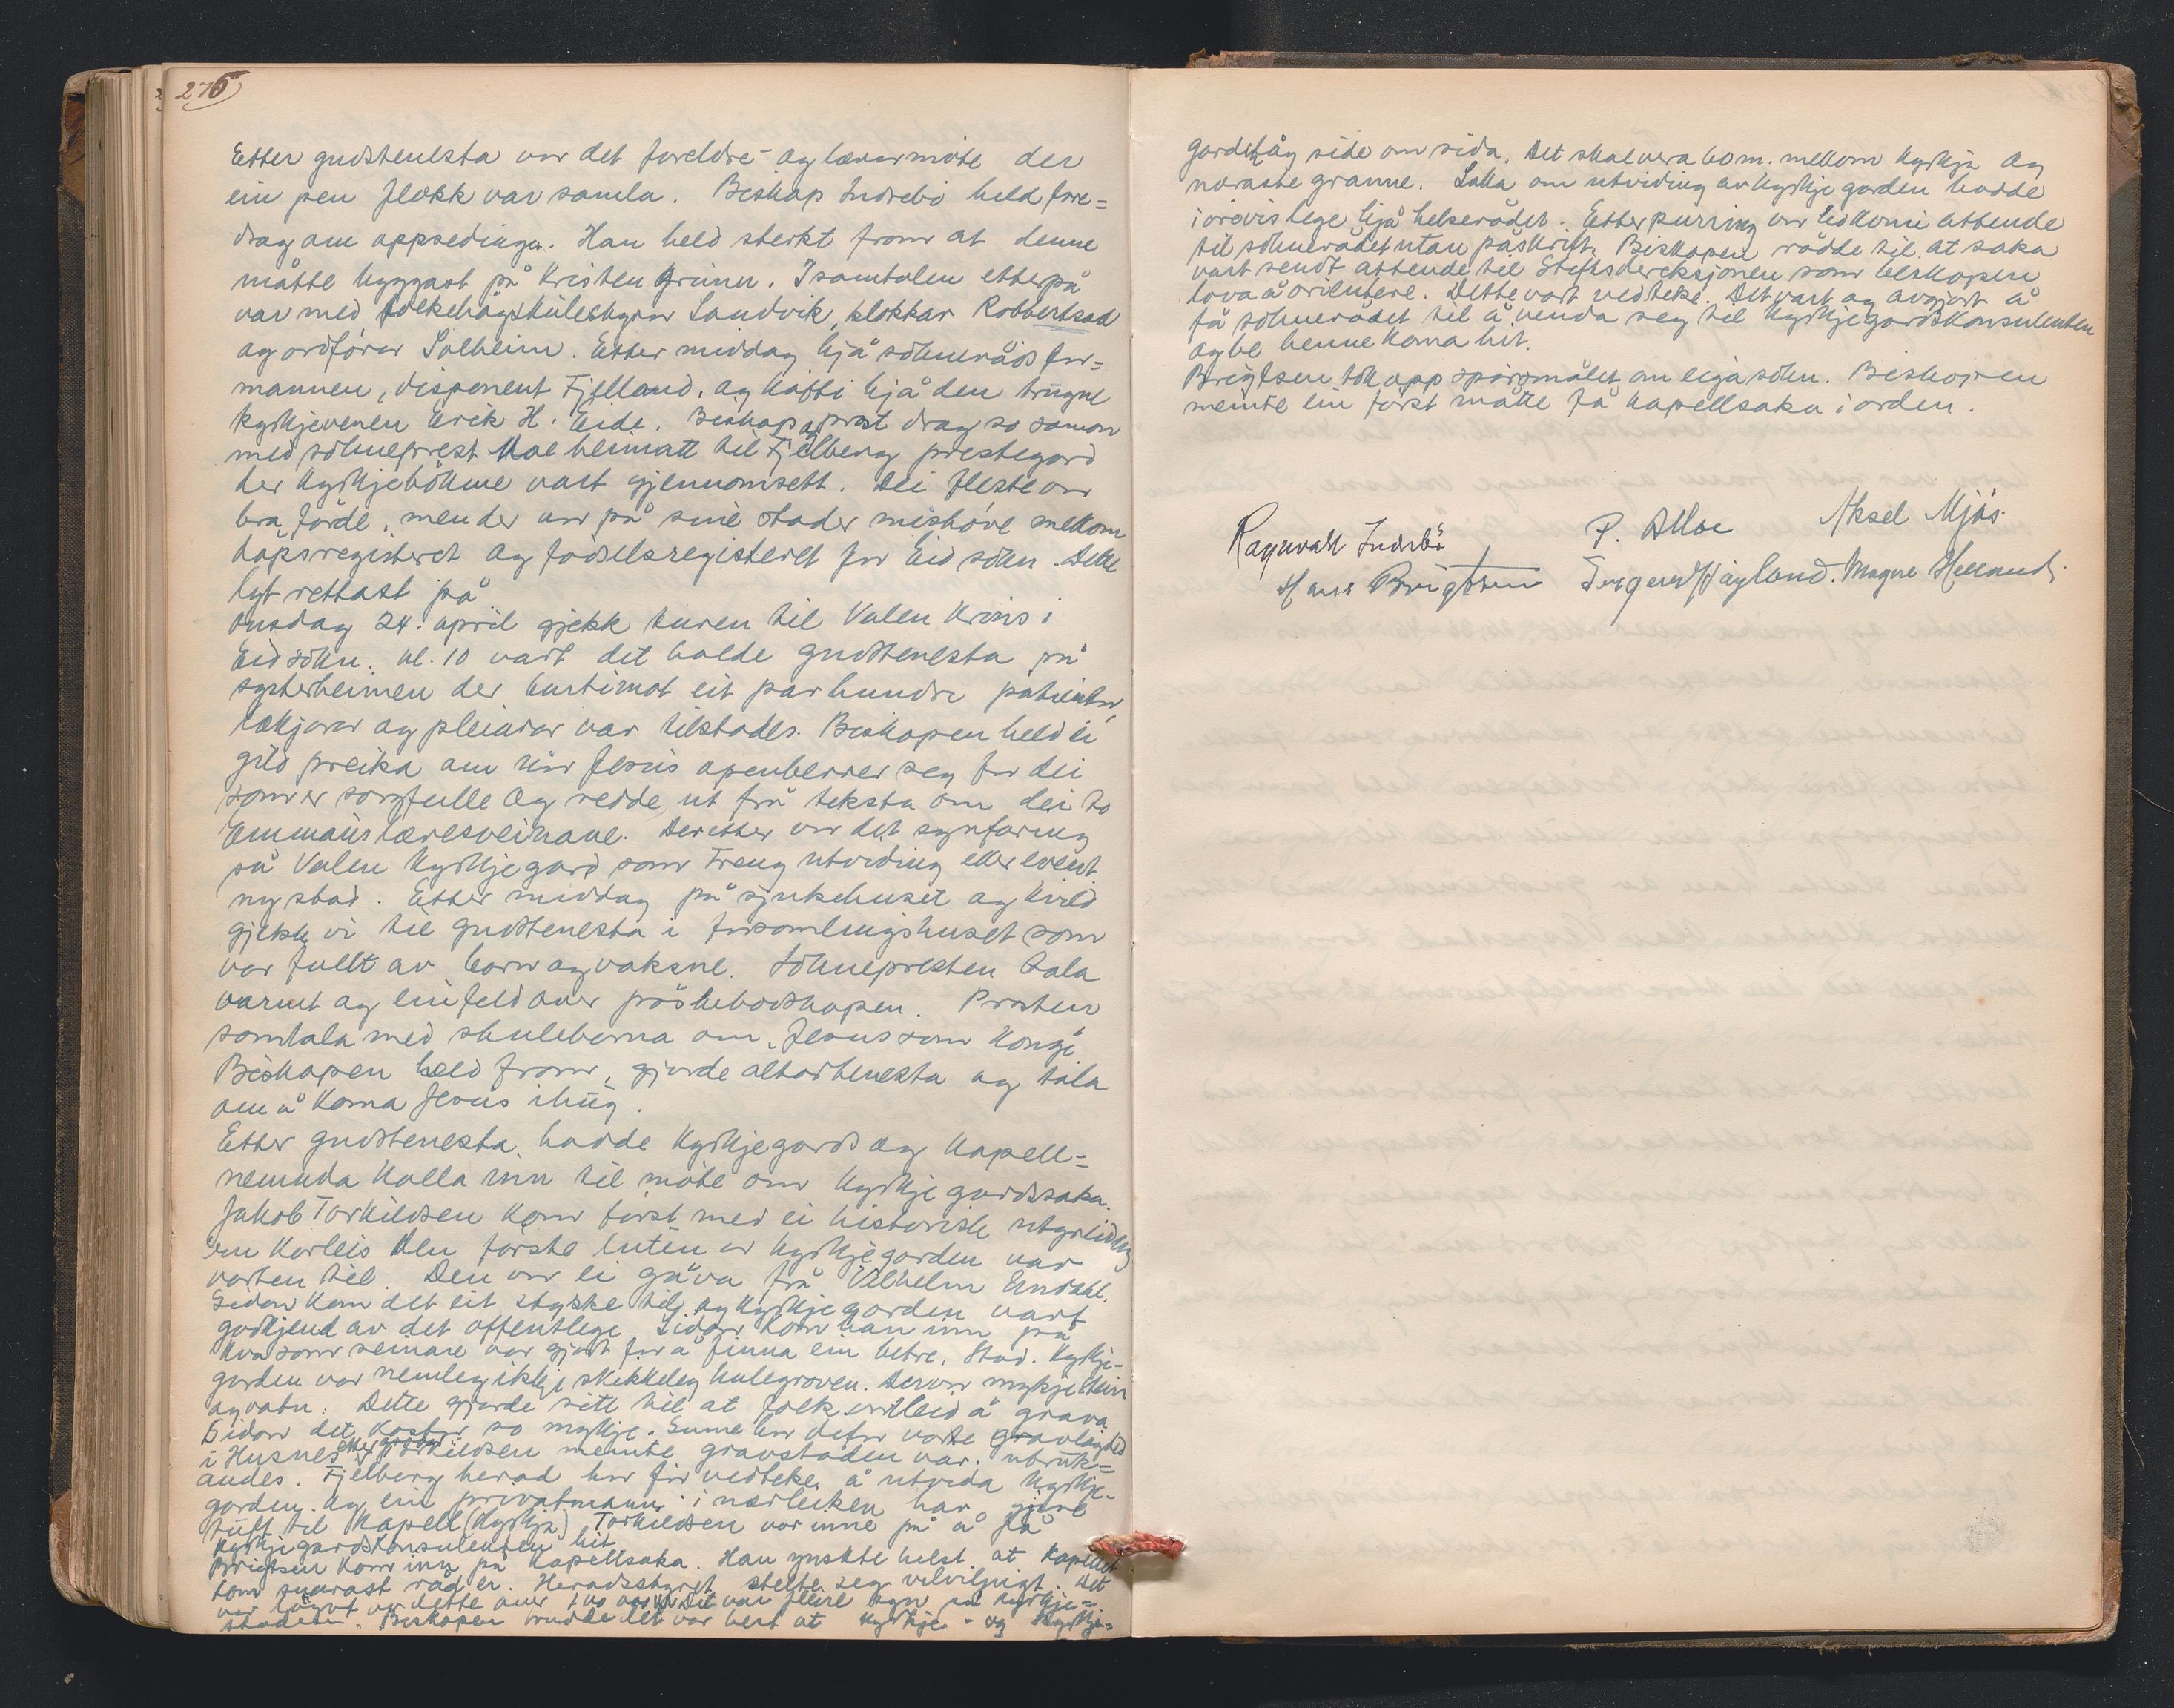 276
Etter gudstenesta var det foreldre- og lærarmöte der
ein pen flokk var samla. Biskop Indrebö held fore=
drag om oppsedingа. Han held sterkt fram at denne
måtte byggast på kristen grunn. I samtalen etterpå
var med folkehögskulestyrar Sandvik, klokkar Robbertsad
og ordförar Solheim. Etter middag hjå sokneråds for=
mannen, disponent Fjelland, og kaffi hjå den trugne
kyrkjevenen Erik H. Eide. Biskop og prost drog so saman
med sokneprest Moe heimatt til Fjelberg prestegard
der kyrkjebökene vart gjennomsett. Dei fleste var
bra förde, men der var på sine stader mishöve mellom
dåpsregisteret og fødselsregisteret for Eid sokn. Dette
lyt rettast på
Onsdag 24. april gjekk turen til Valen krins i
Eid sokn. Kl. 10 vart det halde gudstenesta på
systerheimen der burtimot eit par hundre patientar,
lækjarar og pleiarar var tilstades. Biskopen held ei
gild preika om når Jesus openberrer seg for dei
som er sorgfulle og redde, ut frå teksta om dei to
Emmaus læresveinane. Deretter var det synfaring
på Valen kyrkjegard som treng utviding eller event.
ny stad. Etter middag på sjukehuset og kvild
gjekk vi til gudstenesta i forsamlingshuset som
var fullt av born og vaksne. Soknepresten tala
varmt og einfeld over påskebodskapen. Prosten
samtala med skuleborna om Jesus som konge
Biskopen held fram, gjorde altartenesta og tala
om å koma Jesus ihug.
Etter gudstenesta hadde kyrkjegards og kapell=
nemnda kalla inn til möte om kyrkjegardssaka.
Jakob Torkildsen kom först med ei historisk utgreiding
om korleis den förste luten av kyrkjegarden var
vorten til. Den var ei gåva frå Vilhelm Undahl.
Sidan kom det eit stykke til, og kyrkjegarden vart
godkjend av det offentlege. Sidan kom han inn på
kva som seinare var gjort for å finna ein betre stad. Kyrkje-
garden var nemleg ikkje skikkeleg kulegroven. Der var mykje stein
og vatn. Dette gjorde sitt til at folk var leid å grava
Sidan det kostar so mykje. Sume har difor vorte gravlagde
i Husnes. Torkildsen meinte gravstaden var ubruk=
andes. Fjelberg herad har för vedteke å utvida kyrkje-
garden. Og ein privatmann i nærleiken har gjeve
tuft til kapell (kyrkja) Torkildsen var inne på å få
kyrkjegardskonsulenten hit.
Brigtsen kom inn på kapellsaka. Han ynskte helst at kapellet
kom snarast råd er. Heradsstyret stelte seg velviljugt. Det
var det var fleire syn på kyrkje=
staden. Biskopen trudde det var best at kyrkje- og kyrkje=
gard låg side om sida. Det skal vera 60 m. mellom kyrkja og
næraste granne. Saka om utviding av kyrkjegarden hadde
i årevis lege hjå helserådet. Etter purring var ho komi attende
til soknerådet utan påskrift. Biskopen rådde til at saka
vart sendt attende til Stiftsdireksjonen som biskopen
lova å orientere. Dette vart vedteke. Det vart og avgjort å
få soknerådet til å venda seg til kyrkjegardskonsulenten
og be henne koma hit.
Brigtsen tok opp spörsmålet om eiga sokn. Biskopen
meinte ein först måtte få kapellsaka i orden.
Ragnvald Indrebö P. A. Moe Aksel Mjös.
Hans Brigtsen Torgeir Høyland. Magne Helland.